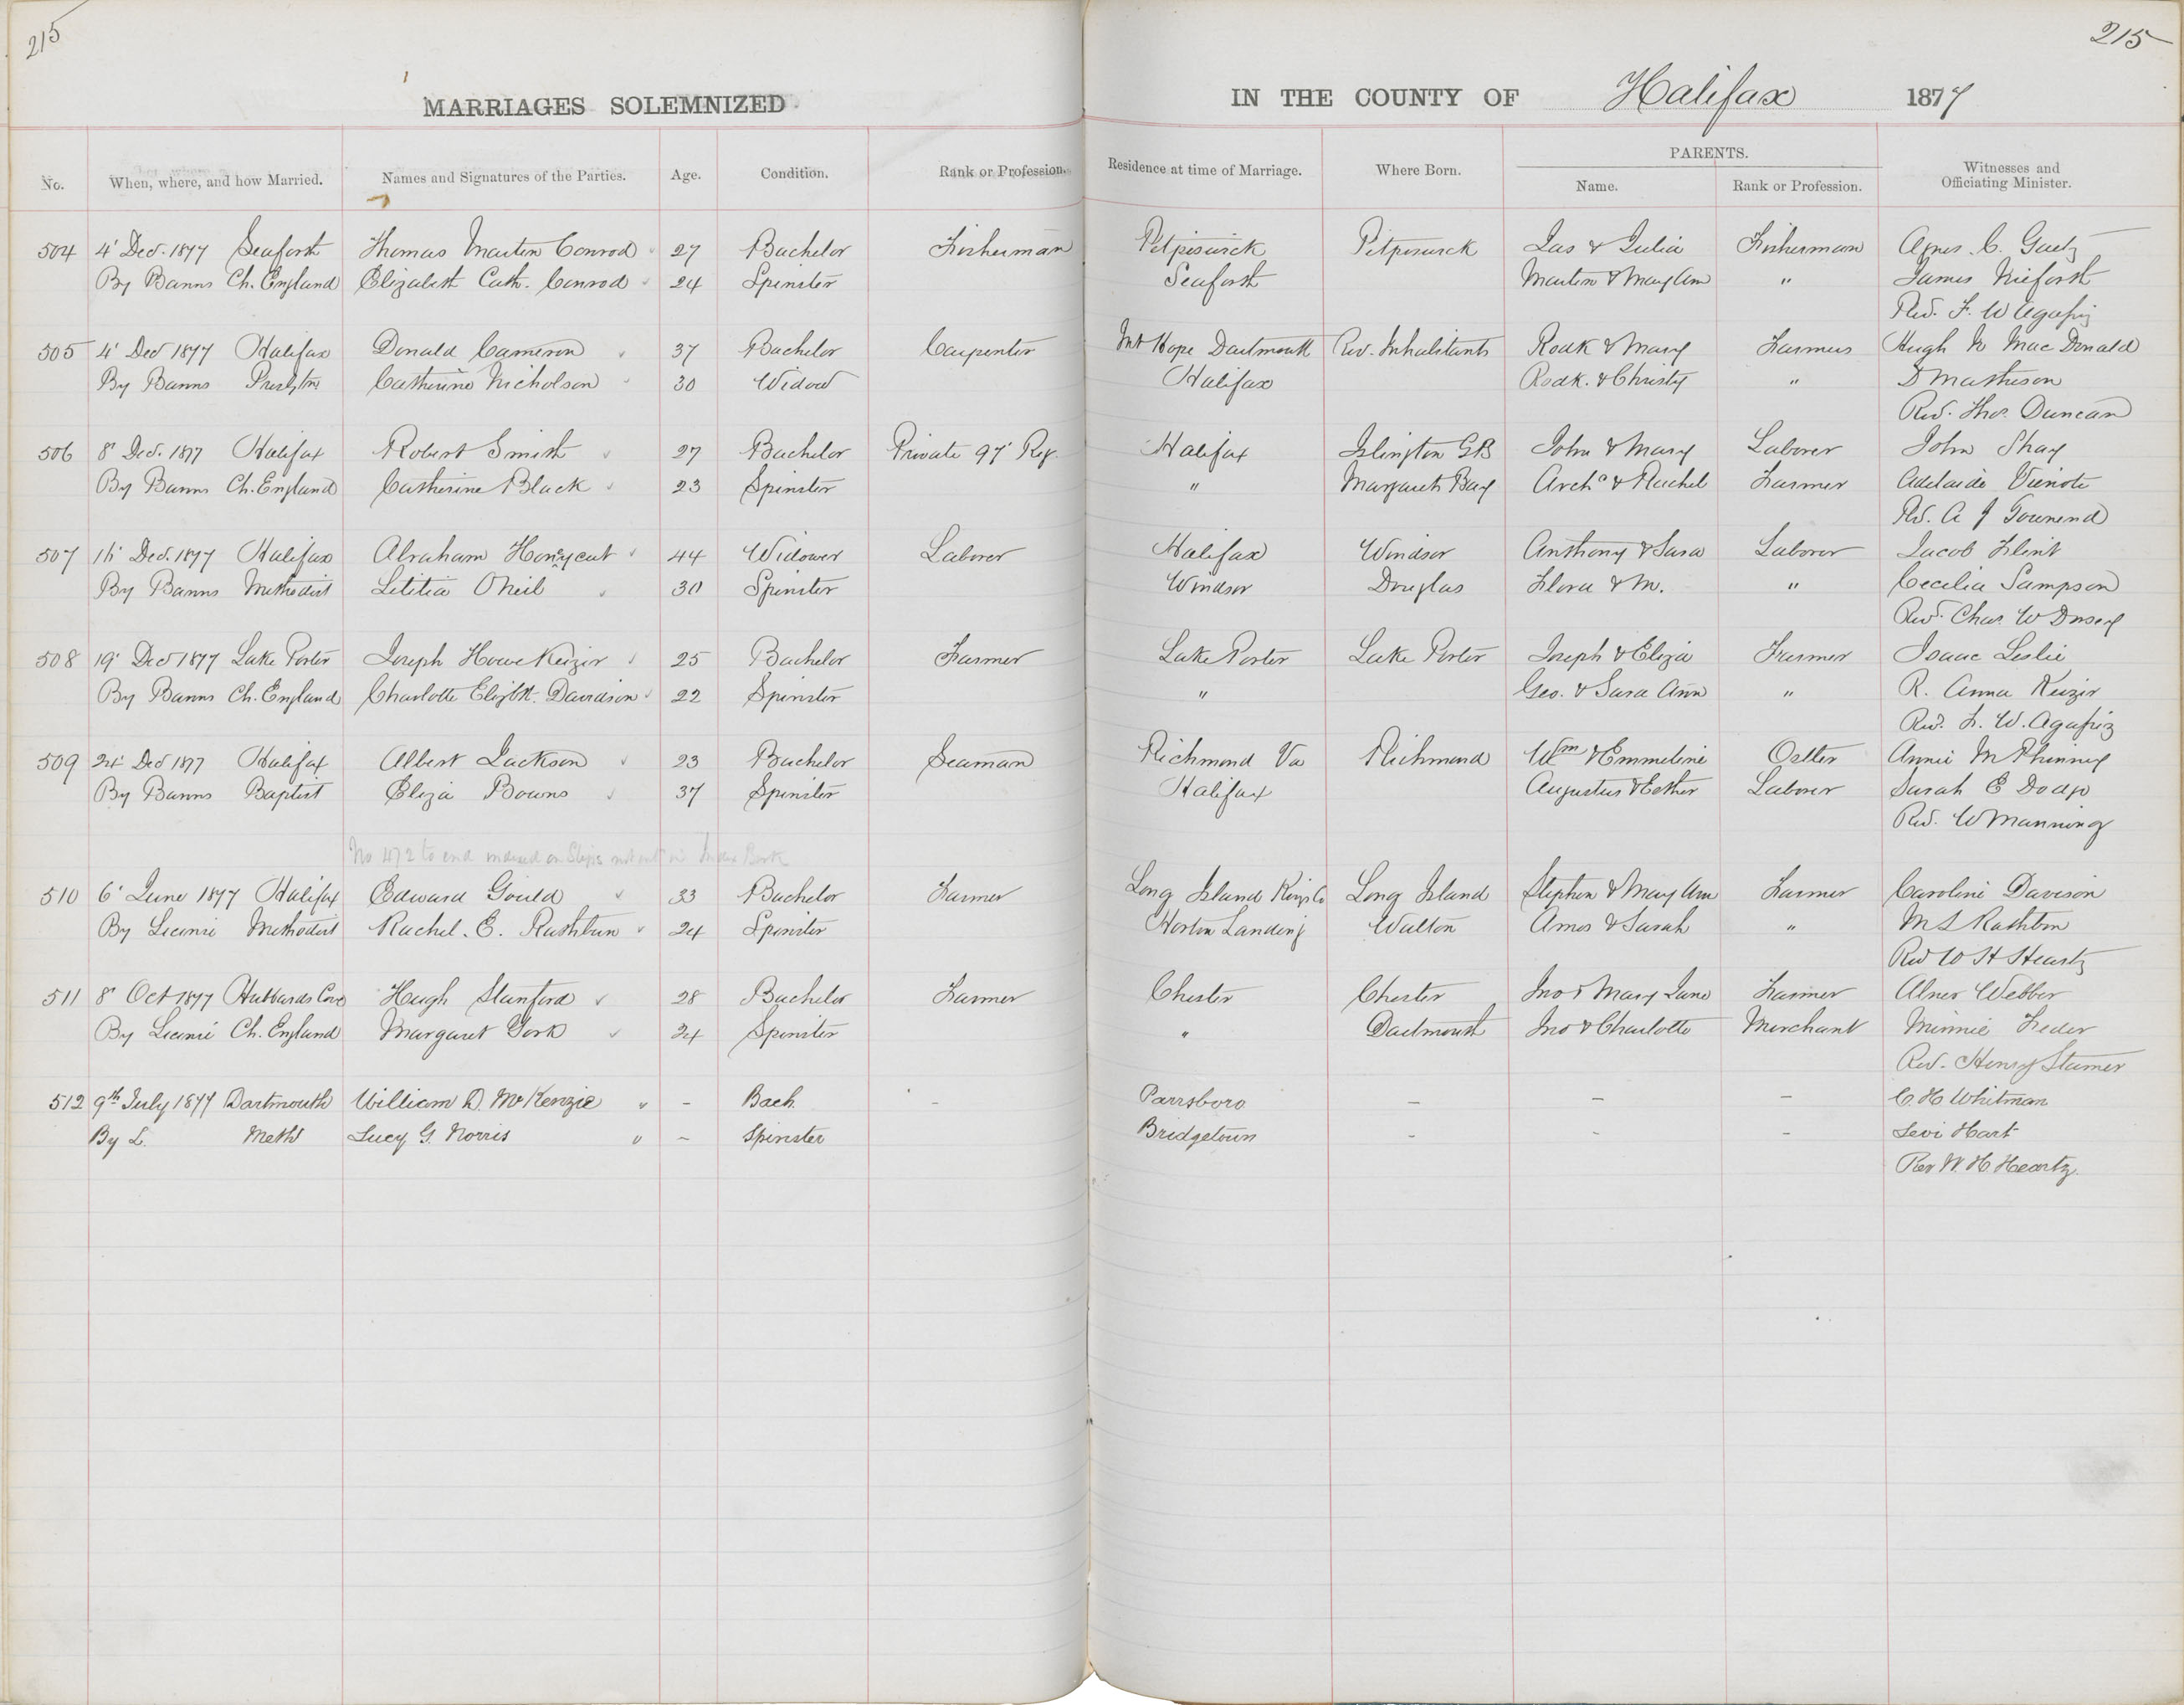 215
215
MARRIAGES SOLEMNIZED IN THE COUNTY OF Halifax 1877
No. When, where, and how Married. Names and Signatures of the Parties. Age. Condition. Rank or Profession. Residence at time of Marriage. Where Born. PARENTS. Name. Rank or Profession. Witnesses and Officiating Minister.
504 4' Decr. 1877 Seaforth Thomas Martin Conrod 27 Bachelor Fisherman Petpiswick Petpiswick Jas & Julia Fisherman Agnes C. Gaetz
By Banns Ch. England Elizabeth Cath. Conrod 24 Spinster Seaforth Martin & Mary Ann " James Nieforth
Rev. F. W
505 4' Decr 1877 Halifax Donald Cameron 37 Bachelor Carpenter Mt Hope Dartmouth Riv. Inhabitants Rodk & Mary Farmers Hugh N MacDonald
By Banns Presbytn Catherine Nicholson 30 Widow Halifax Rodk. & Christy " D Matheson
Rev. Thos. Duncan
506 8' Decr. 1877 Halifax Robert Smith 27 Bachelor Private 97' Reg. Halifax Islington GB John & Mary Laborer John Shay
By Banns Ch. England Catherine Black 23 Spinster " Margarets Bay Archd & Rachel Farmer Adelaide Vienote
Rev. A J Townend
507 16' Decr. 1877 Halifax Abraham Honeycut 44 Widower Laborer Halifax Windsor Anthony & Sara Laborer Jacob Flint
By Banns Methodist Letitia ONeil 30 Spinster Windsor Douglas Flora & M. " Cecilia Sampson
Rev. Chas. W
508 19' Decr 1877 Lake Porter Joseph Howe Keizir 25 Bachelor Farmer Lake Porter Lake Porter Joseph & Eliza Farmer Isaac Leslie
By Banns Ch. England Charlotte Elizbth. Davidson 22 Spinster " Geo. & Sara Ann " R. Anna Keizir
Rev. F. W.
509 24' Decr 1877 Halifax Albert Jackson 23 Bachelor Seaman Richmond Va Richmond Wm & Emmeline Ostler Annie McPhinney
By Banns Baptist Eliza Bowns 37 Spinster Halifax Augustus & Esther Laborer Sarah E Dodge
Rev. W Manning
No 472 to end indexed on Slips not in Index Book
510 6' June 1877 Halifax Edward Gould 33 Bachelor Farmer Long Island Kings Co Long Island Stephen & Mary Ann Farmer Caroline Davison
By License Methodist Rachel. E. Rathbun 24 Spinster Horton Landing Walton Amos & Sarah " M L Rathbun
Rev W H Heartz
511 8' Oct 1877 Hubbards Cove Hugh Stanford 28 Bachelor Farmer Chester Chester Jno & Mary Jane Farmer Abner Webber
By License Ch. England Margaret York 24 Spinster " Dartmouth Jno & Charlotte Merchant Minnie Feder
Rev. Henry Stamer
512 9th July 1877 Dartmouth William D. McKenzie " - Bach. - Parrsboro - - - C. H. Whitman
By L. Meth Lucy G. Norris " - Spinster Bridgetown - - - Levi Hart
Rev W. H. Heartz.